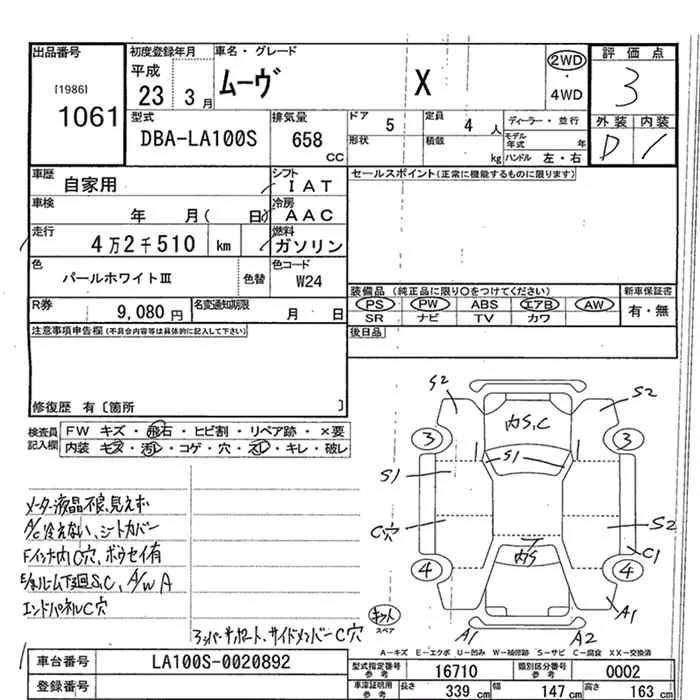 出品番号 初度登録年月 車名・グレード 評価点
[1986] 平成 ムーヴ X 2WD 3
1061 23 3月 ・ 4WD 外装 内装
型式 排気量 ドア 5 定員 4人 ディーラー・並行 D 1
DBA-LA100S 658 CC 形状 積載 kg モデル年式 年
ハンドル 左・右
車歴 自家用 シフト IAT セールスポイント(正常に機能するものに限ります)
車検 年 月( 日) 冷房 AAC
走行 4万2千510 km 燃料 ガソリン
色 パールホワイトⅢ 色替 色コード W24
装備品 (純正品に限り○をつけてください) 新車保証書
R券 9,080円 名変通知期限 月 日 PS PW ABS エアB AW 有・無
SR ナビ TV カワ
注意事項申告欄(不具合内容等は具体的に記入して下さい) 後日品
修復歴 有 [箇所 ]
検査員記入欄 FW キズ・飛石・ヒビ割・リペア跡・×要
内装 キズ・汚レ・コゲ・穴・スレ・キレ・破レ
メーター液晶不良、見えず
A/C冷えない、シートカバー
Fインナー内C穴、ボウセイ有
E/ルーム下廻S,C、A/W A
エンドパネルC穴
アッパーサポート、サイドメンバーC穴
S2 S2
内S,C
3 3
S1 S1
C穴 S2
内S C1
4 4
キット スペア A1 A2 A1
A-キズ E-エクボ U-凹み W-補修跡 S-サビ C-腐食 XX-交換済
車台番号 LA100S-0020892 型式指定番号参考 16710 類別区分番号参考 0002
登録番号 車庫証明用参考 長さ 339cm 幅 147cm 高さ 163cm